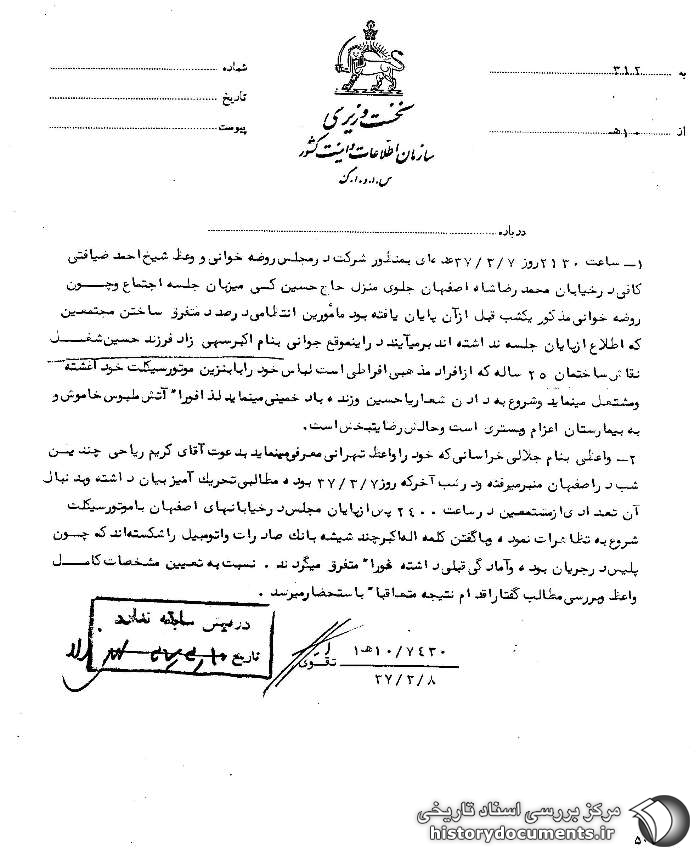 به ۳۱۲
شماره
تاریخ
از ۱۰هـ
پیوست
نخست وزیری
سازمان اطلاعات و امنیت کشور
س.ا.و.ا.ک
درباره
۱ـ ساعت ۲۱۳۰ روز ۳۷/۳/۷ عده ای بمنظور شرکت در مجلس روضه خوانی و وعظ شیخ احمد ضیافتی
کافی در خیابان محمد رضا شاه اصفهان جلوی منزل حاج حسین کسی میهان جلسه اجتماع وچون
روضه خوانی مذکور یکشب قبل ازآن پایان یافته بود مأمورین انتظامی درصدد متفرق ساختن مجتمعین
که اطلاع ازپایان جلسه نداشته اند برمیآیند دراینموقع جوانی بنام اکبرسهی زاد فرزند حسین شغل
نقاش ساختمان ۲۵ ساله که ازافراد مذهبی افراطی است لباس خود رابابنزین موتورسیکلت خود آغشته
ومشتعل مینماید وشروع به دادن شعاریاحسین وزنده باد خمینی مینماید لذا فورا" آتش ملبوس خاموش و
به بیمارستان اعزام وبستری است وحالش رضایتبخش است.
۲ـ واعظی بنام جلالی خراسانی که خود راواعظ تهرانی معرفی مینماید بدعوت آقای کریم ریاحی چندین
شب دراصفهان منبرمیرفته ودرشب آخرکه روز ۳۷/۳/۷ بوده مطالبی تحریک آمیز بیان داشته وبدنبال
آن تعدادی ازمستمعین در ساعت ۲۴۰۰ پس ازپایان مجلس درخیابانهای اصفهان باموتورسیکلت
شروع به تظاهرات نموده وباگفتن کلمه اله اکبرچند شیشه بانک صادرات واتومبیل راشکسته اند که چون
پلیس درجریان بوده وآمادگی قبلی داشته فورا" متفرق میگردند . نسبت به تعیین مشخصات کامل
واعظ وبررسی مطالب گفتاراقدام نتیجه متعاقبا" باستحضارمیرسد .
دربیس سابقه ندارد
تاریخ
تقوی
۱۰/۷۴۳۰هـ۱
۳۷/۳/۸
مرکز بررسی اسناد تاریخی
historydocuments.ir